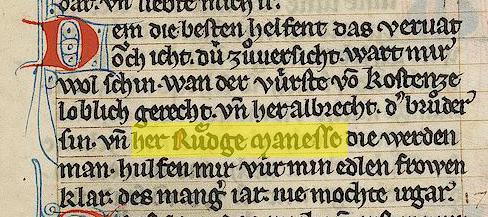 dar. vn̄ liebte mich ir.
Dem die besten helfent das veruat
och icht. dú zůuersicht. wart mir
wol schin. wan der vúrste vō Kostenze
loblich gerecht. vn̄ her albrecht. d' brůder
sin. vn̄ her Růdge manesse die werden
man. hulfen mir vúr min edlen frowen
klar. des mang' iar. nie mochte irgar.